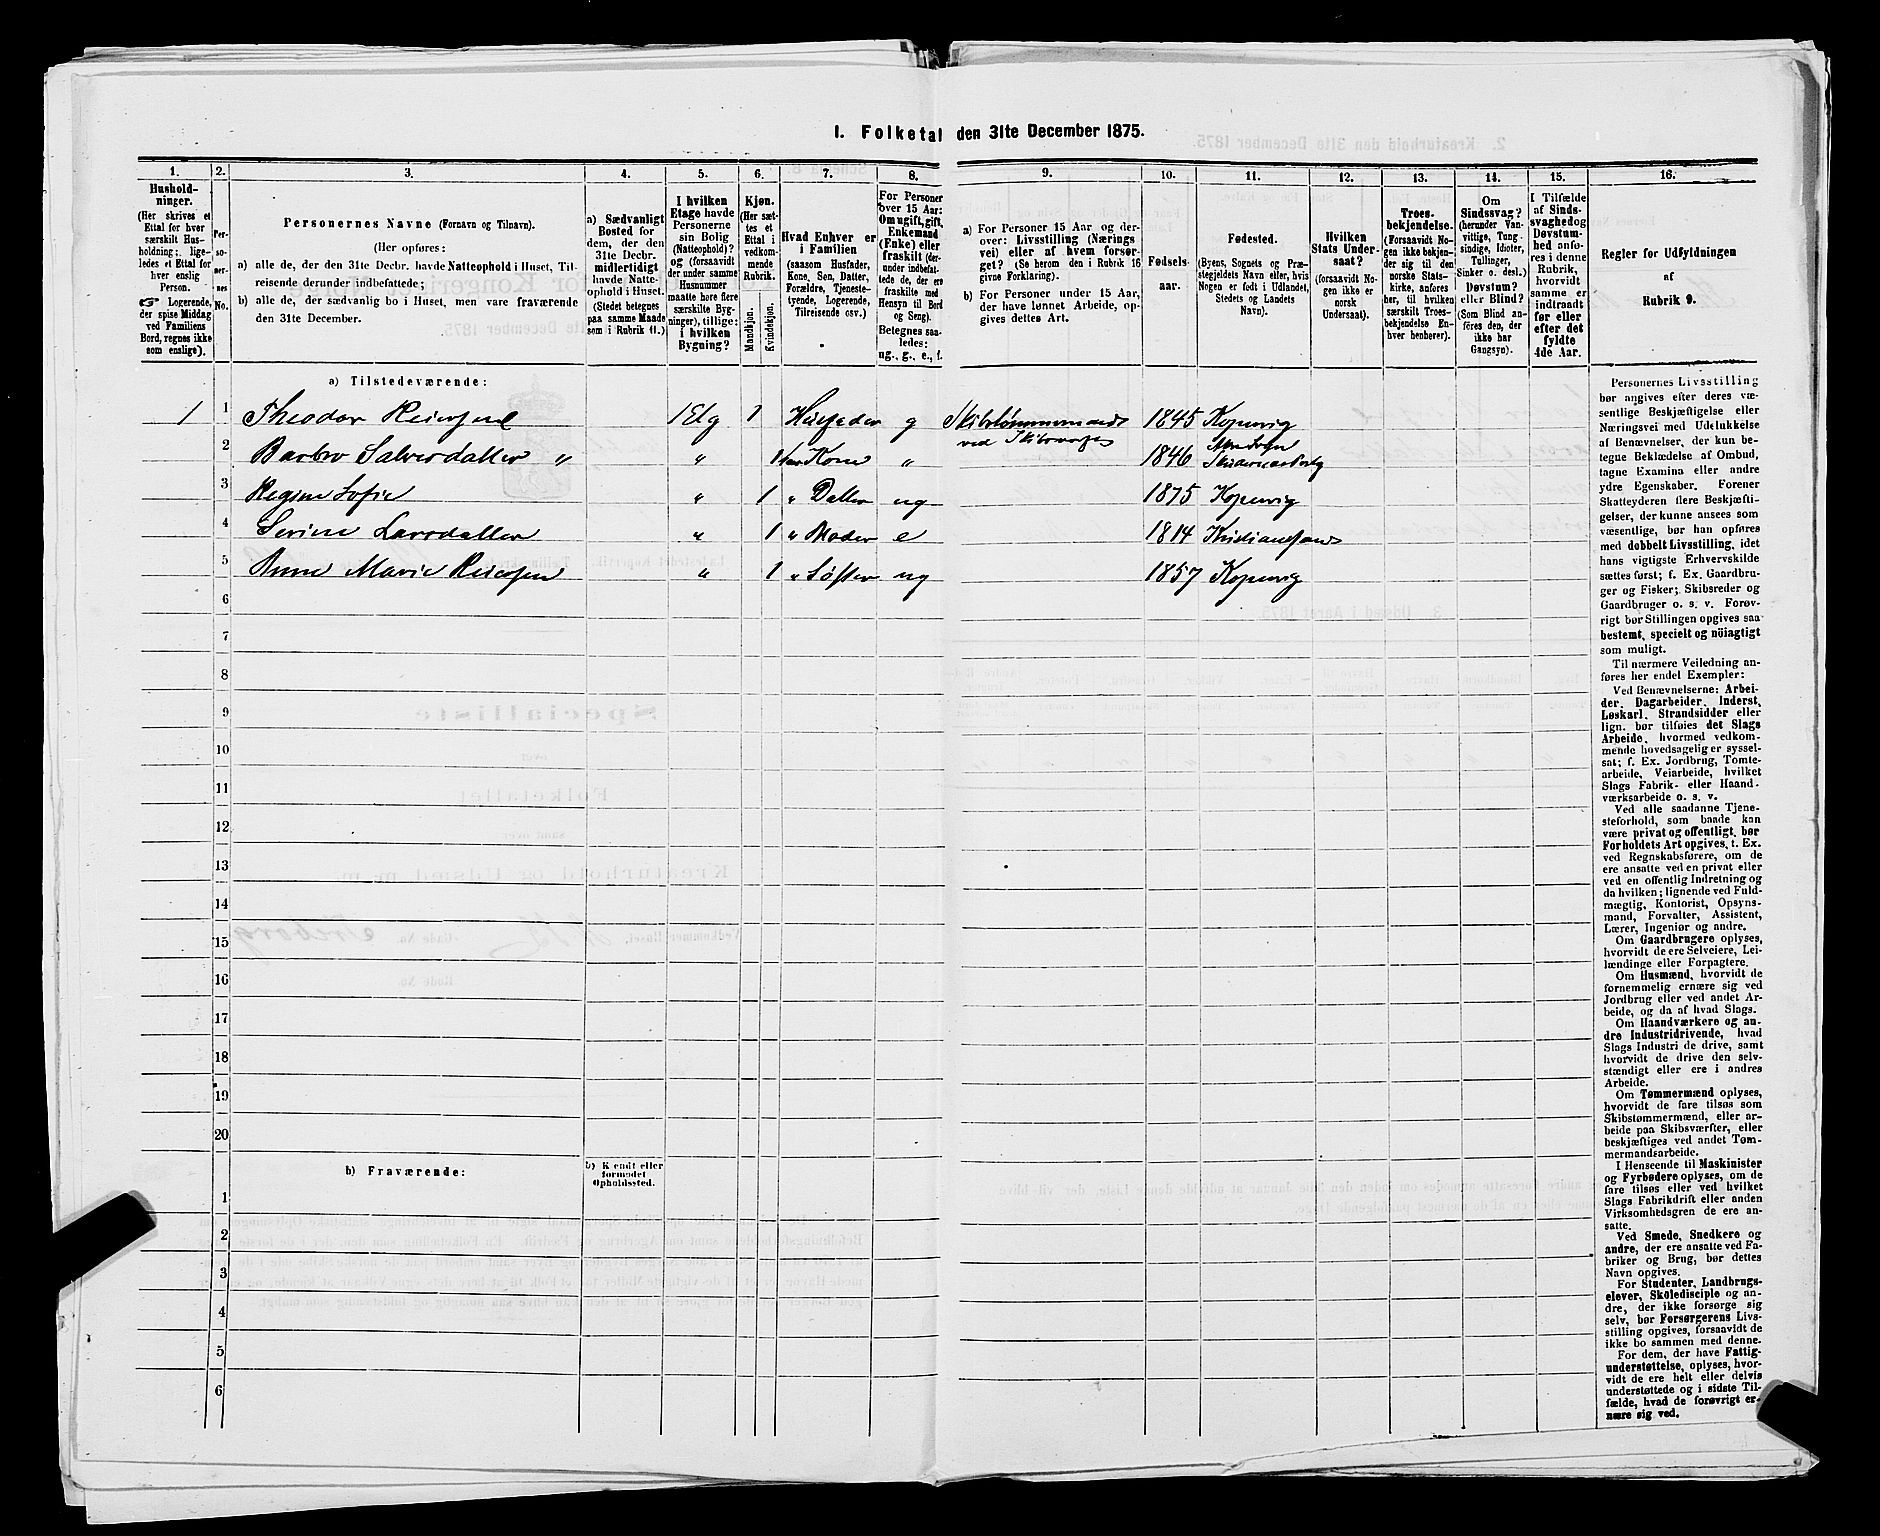 1. Folketal den 31te December 1875.
1.
Hushold-
ninger.
(Her skrives et
Ettal for hver
særskilt Hus-
holdning; lige-
ledes et Ettal for
hver enslig
Person.
Logerende,
der spise Middag
ved Familiens
Bord, regnes ikke
som enslige).
2.
Per-
so-
ner-
nes
No.
3.
Personernes Navne (Fornavn og Tilnavn).
(Her opføres:
a) alle de, der den 31te Decbr. havde Natteophold i Huset, Til-
reisende derunder indbefattede;
b) alle de, der sædvanlig bo i Huset, men vare fraværende
den 31te December.
4.
a) Sædvanligt
Bosted for
dem, der den
31te Decbr.
midlertidigt
havde Natte-
ophold i Huset.
(Stedet betegnes
paa samme Maade
som i Rubrik 11.)
5.
I hvilken
Etage havde
Personerne
sin Bolig
(Natteophold)?
og (forsaavidt
der under samme
Husnummer
maatte høre flere
særskilte Byg-
ninger), tillige:
i hvilken
Bygning?
6.
Kjøn.
(Her sæt-
tes et
Ettal i
vedkom-
mende
Rubrik.
Mandkjøn.
Kvindekjøn.
7.
Hvad Enhver er
i Familien
(saasom Husfader,
Kone, Søn, Datter,
Forældre, Tjeneste-
tyende, Logerende,
Tilreisende osv.)
8.
For Personer
over 15 Aar:
Om ugift, gift,
Enkemand
(Enke) eller
fraskilt (der-
under indbefat-
tede de, der ere
fraskilte med
Hensyn til Bord
og Seng).
Betegnes saa-
ledes:
ug., g., e., f.
9.
a) For Personer 15 Aar og der-
over: Livsstilling (Nærings
vei) eller af hvem forsør-
get? (Se herom den i Rubrik 16
givne Forklaring).
b) For Personer under 15 Aar,
der have lønnet Arbeide, op-
gives dettes Art.
10.
Fødsels-
aar.
11.
Fødested.
(Byens, Sognets og Præ-
stegjeldets Navn eller, hvis
Nogen er født i Udlandet,
Stedets og Landets
Navn).
12.
Hvilken
Stats Under-
saat?
(forsaavidt No-
gen ikke er
norsk
Undersaat).
13.
Troes-
bekjendelse.
(Forsaavidt No-
gen ikke bekjen-
der sig til den
norske Stats-
kirke, anføres
her, til hvilken
særskilt Troes-
bekjendelse En-
hver henhører).
14.
Om
Sindssvag?
(herunder Van-
vittige, Tung-
sindige, Idioter,
Tullinger,
Sinker o. desl.)
Døvstum?
eller Blind?
(Som Blind an-
føres den, der
ikke har
Gangsyn).
15.
I Tilfælde
af Sinds-
svaghed og
Døvstum-
hed anfø-
res i denne
Rubrik,
hvorvidt
samme er
indtraadt
før eller
efter det
fyldte
4de Aar.
16.
Regler for Udfyldningen
af
Rubrik 9.
a) Tilstedeværende:
1 1 Theodor Reiersen 1 Etg 1 Husfader g Skibstømmermand ved Skibsværft 1845 Kopervig
2 Barbro Salvesdatter " " 1 hans Kone " 1846
3 Regine Sofie " 1 " Datter ug 1875 Kopervig
4 Serine Larsdatter " 1 " Moder e 1814 Kristiansand
5 Anne Marie Reiersen " 1 " Søster ug 1857 Kopervig
6
7
8
9
10
11
12
13
14
15
16
17
18
19
20
b) Fraværende:
b) Kjendt eller
formodet
Opholdssted.
1
2
3
4
5
6
Personernes Livsstilling
bør angives efter deres væ-
sentlige Beskjæftigelse eller
Næringsvei med Udelukkelse
af Benævnelser, der kun be-
tegne Beklædelse af Ombud,
tagne Examina eller andre
ydre Egenskaber. Forener
Skatteyderen flere Beskjæfti-
gelser, der kunne ansees som
væsentlige, bør han opføres
med dobbelt Livsstilling, idet
hans vigtigste Erhvervskilde
sættes først; f. Ex. Gaardbru-
ger og Fisker; Skibsreder og
Gaardbruger o. s. v. Forøv-
rigt bør Stillingen opgives saa
bestemt, specielt og nøiagtigt
som muligt.
Til nærmere Veiledning an-
føres her endel Exempler:
Ved Benævnelserne: Arbei-
der, Dagarbeider, Inderst,
Løskarl, Strandsidder eller
lign. bør tilføies det Slags
Arbeide, hvormed vedkom-
mende hovedsagelig er syssel-
sat; f. Ex. Jordbrug, Tomte-
arbeide, Veiarbeide, hvilket
Slags Fabrik- eller Haand-
værksarbeide o. s. v.
Ved alle saadanne Tjene-
steforhold, som baade kan
være privat og offentligt, bør
Forholdets Art opgives, t. Ex.
ved Regnskabsførere, om de
ere ansatte ved en privat eller
ved en offentlig Indretning og
da hvilken; lignende ved Fuld-
mægtig, Kontorist, Opsyns-
mand, Forvalter, Assistent,
Lærer, Ingeniør og andre.
Om Gaardbrugere oplyses,
hvorvidt de ere Selveiere, Lei-
lændinge eller Forpagtere.
Om Husmænd, hvorvidt de
fornemmelig ernære sig ved
Jordbrug eller ved andet Ar-
beide, og da af hvad Slags.
Om Haandværkere og an-
dre Industridrivende, hvad
Slags Industri de drive, samt
hvorvidt de drive den selv-
stændigt eller ere i andres
Arbeide.
Om Tømmermænd oplyses,
hvorvidt de fare tilsøs som
Skibstømmermænd, eller ar-
beide paa Skibsværfter, eller
beskjæftiges ved andet Tøm-
mermandsarbeide.
I Henseende til Maskinister
og Fyrbødere oplyses, om de
fare tilsøs eller ved hvilket
Slags Fabrikdrift eller anden
Virksomhedsgren de ere an-
satte.
Ved Smede, Snedkere og
andre, der ere ansatte ved Fa-
briker og Brug, bør dettes
Navn opgives.
For Studenter, Landbrugs-
elever, Skoledisciple og an-
dre, der ikke forsørge sig
selv, bør Forsørgerens Livs-
stilling opgives, forsaavidt de
ikke bo sammen med denne.
For dem, der have Fattig-
understøttelse, oplyses, hvor-
vidt de ere helt eller delvis
understøttede og i sidste Til-
fælde, hvad de forøvrigt er-
nære sig ved.